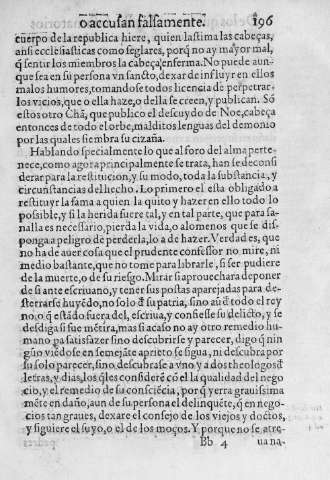 o accusan falsamente. 196
cuerpo de la republica hiere, quien lastima las cabeças,
ansi ecclesiasticas como seglares, porq̃ no ay mayor mal,
q̃ sentir los miembros la cabeça enferma. No puede aun-
que sea en su persona vn sancto, dexar de influyr en ellos
malos humores, tomandose todos licencia de perpetrar
los vicios, que o ella haze, o della se creen, y publican. Só
estos otro Chã, que publico el descuydo de Noe, cabeça
entonces de todo el orbe, malditos lenguas del demonio
por las quales siembra su cizaña.
Hablando specialmente lo que al foro del alma perte-
nece, como agora principalmente se trata, han se de consi
derar para la restitucion, y su modo, toda la substancia, y
circunstancias del hecho. Lo primero esta obligado a
restituyr la fama a quien la quito y hazer en ello todo lo
possible, y si la herida fuere tal, y en tal parte, que para sa-
nalla es necessario, pierda la vida, o alomenos que se dis-
ponga a peligro de perderla, lo a de hazer. Verdad es, que
no ha de auer cosa que el prudente confessor no mire, ni
medio bastante, que no tome para librarle, si ser pudiere
de la muerte, o de su riesgo. Mirar si aprouechara deponer
de si ante escriuano, y tener sus postas aparejadas para de-
sterrarse huyẽdo, no solo d̃ su patria, sino aũ d̃ todo el rey
no, o q̃ estãdo fuera del, escriua, y confiesse su delicto, y se
desdiga si fue mẽtira, mas si acaso no ay otro remedio hu-
mano pa satisfazer sino descubrirse y parecer, digo q̃ nin
gũo viẽdose en semejãte aprieto se sigua, ni descubra por
su solo parecer, sino descubrase a vno y a dos theologos d̃
letras, y dias, los q̃les considerẽ cõ el la qualidad del nego
cio, y el remedio de su consciẽcia, por q̃ yerra grauissima
mẽte en daño, aun de su persona el delinquẽte, q̃ en nego-
cios tan graues, dexare el consejo de los viejos y doctos,
y siguiere el suyo, o el de los moços. Y porque no se atre-
Bb 4 ua na-